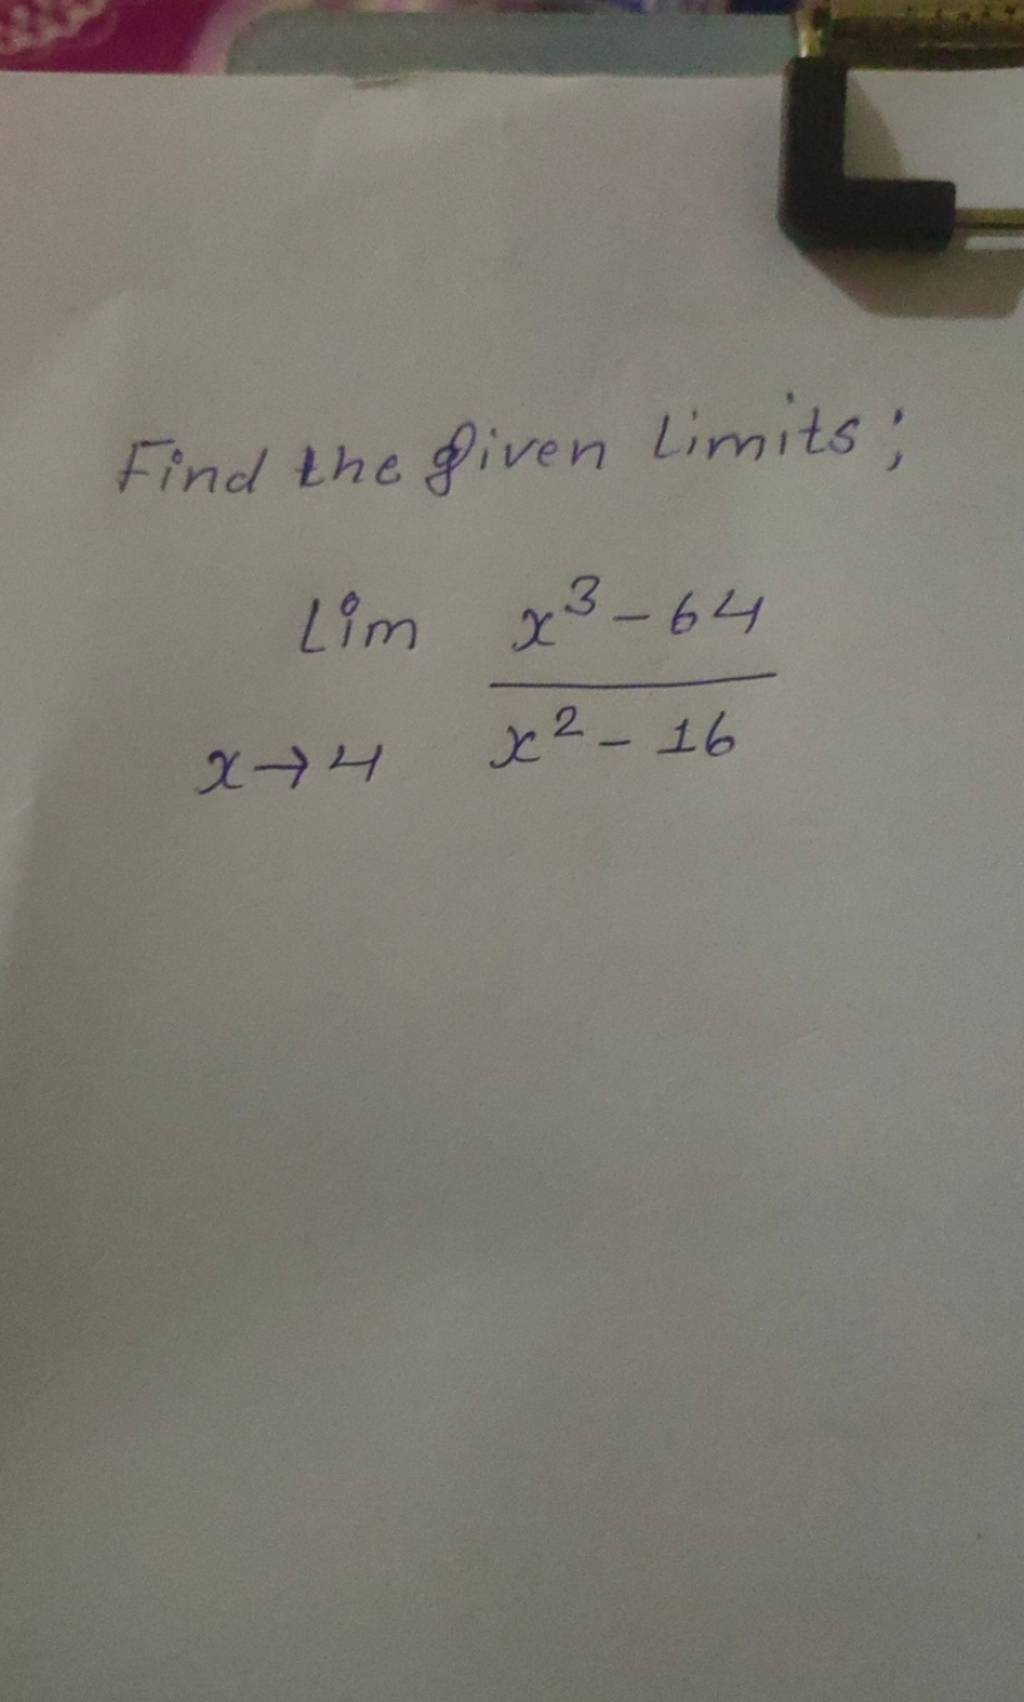 Find the given Limits;
Lim x³-64
x→4 x²-16